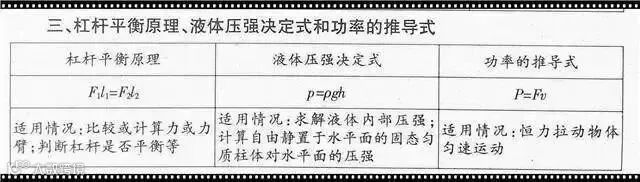 三、杠杆平衡原理、液体压强决定式和功率的推导式
杠杆平衡原理
液体压强决定式
功率的推导式
F₁l₁=F₂l₂
p=ρgh
P=Fv
适用情况:比较或计算力或力
臂;判断杠杆是否平衡等
适用情况:求解液体内部压强;
计算自由静置于水平面的固态匀
质柱体对水平面的压强
适用情况:恒力拉动物体
匀速运动